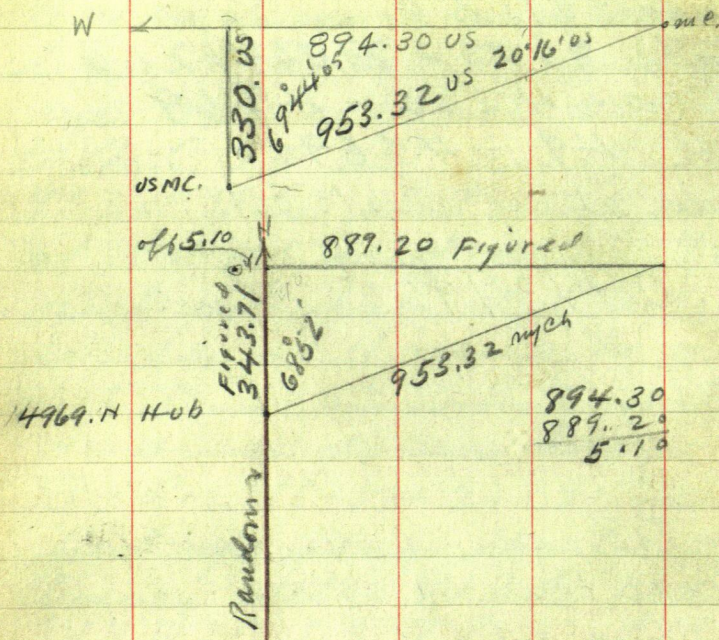 W
m.c.
894.30 US
20°16' US
330. US
69°44' US
953.32 US
US M.C.
off 5.10
N
889.20 Figured
Figured
343.71
68°52'
953.32 my ch
14969. N Hub
894.30
889.20
5.10
Random